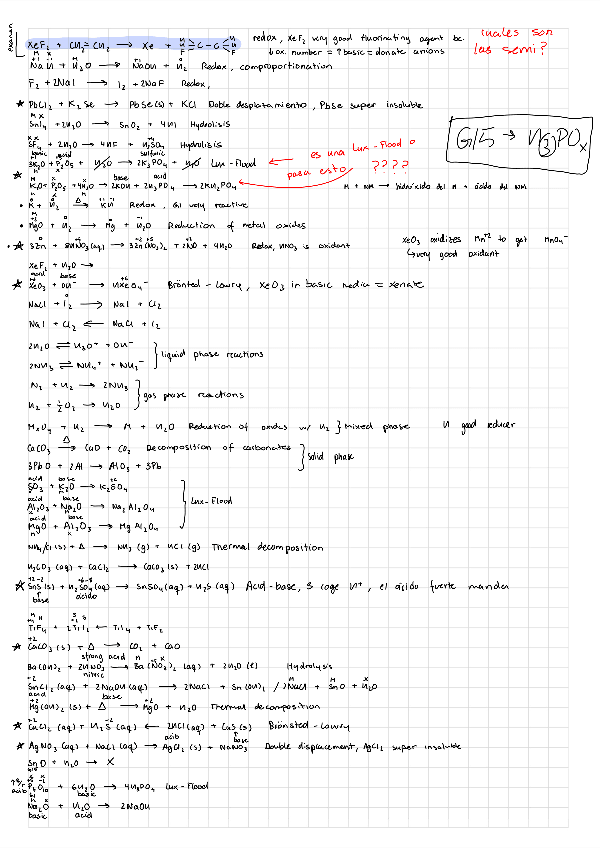 XeF₂ + CH₂=CH₂ → Xe + H H F-C-C-F H H redox, XeF₂ very good fluorinating agent bc. ↓ox. number = ↑basic = donate anions
cuales son las semi?
NaH + H₂O → NaOH + H₂ Redox, comproportionation
F₂ + 2NaI → I₂ + 2NaF Redox,
★ PbCl₂ + K₂Se → PbSe(s) + KCl Doble desplatamiento, PbSe super insoluble
SnI₄ + 2H₂O → SnO₂ + 4HI Hydrolisis
SF₄ + 2H₂O → 4HF + H₂SO₄ Hydrolisis
basic acid sulfuric
3K₂O + P₂O₅ + H₂O → 2K₃PO₄ + H₂O Lux-Flood ← es una Lux-Flood o para esto ????
G15 → H₃POₓ
base acid
★ K₂O + P₂O₅ + 4H₂O → 2KOH + 2H₃PO₄ → 2KH₂PO₄
M + NM → hidróxido del M + ácido del NM
• K + H₂ →Δ KH Redox, G1 very reactive
• MgO + H₂ → Mg + H₂O Reduction of metal oxides
• ★ 3Zn + 8HNO₃(aq) → 3Zn(NO₃)₂ + 2NO + 4H₂O Redox, HNO₃ is oxidant
XeO₃ oxidizes Mn⁺² to get MnO₄⁻
↳ very good oxidant
XeF₂ + H₂O →
acid base
★ XeO₃ + OH⁻ → HXeO₄⁻ Brönted-Lowry, XeO₃ in basic media = xenate
NaCl + I₂ → NaI + Cl₂
NaI + Cl₂ ← NaCl + I₂
2H₂O ⇌ H₃O⁺ + OH⁻
2NH₃ ⇌ NH₄⁺ + NH₂⁻
liquid phase reactions
N₂ + H₂ → 2NH₃
H₂ + ½O₂ → H₂O
gas phase reactions
MₓOᵧ + H₂ → M + H₂O Reduction of oxides w/ H₂ } Mixed phase H good reducer
CaCO₃ →Δ CaO + CO₂ Decomposition of carbonates
3PbO + 2Al → AlO₃ + 3Pb
solid phase
acid base
SO₃ + K₂O → K₂SO₄
acid base
Al₂O₃ + Na₂O → Na₂Al₂O₄
acid base
MgO + Al₂O₃ → MgAl₂O₄
Lux-Flood
NH₄Cl(s) + Δ → NH₃(g) + HCl(g) Thermal decomposition
H₂CO₃(aq) + CaCl₂ → CaCO₃(s) + 2HCl
★ SnS(s) + H₂SO₄(aq) → SnSO₄(aq) + H₂S(aq) Acid-base, S coge H⁺, el ácido fuerte manda
base ácido
TiF₄ + 2TiI₂ ← TiI₄ + TiF₂
★ CaCO₃(s) + Δ → CO₂ + CaO
strong acid
Ba(OH)₂ + 2HNO₃ → Ba(NO₃)₂(aq) + 2H₂O(l) Hydrolysis
nitric
SnCl₂(aq) + 2NaOH(aq) → 2NaCl + Sn(OH)₂ / 2NaCl + SnO + H₂O
acid base
Mg(OH)₂(s) + Δ → MgO + H₂O Thermal decomposition
★ CaCl₂(aq) + H₂S(aq) ← 2HCl(aq) + CaS(s) Brönsted-Lowry
acid base
★ AgNO₃(aq) + NaCl(aq) → AgCl₂(s) + NaNO₃ Double displacement, AgCl₂ super insoluble
SnO + H₂O → X
P₄O₁₀ + 6H₂O → 4H₃PO₄ Lux-Flood
acid basic
Na₂O + H₂O → 2NaOH
basic acid